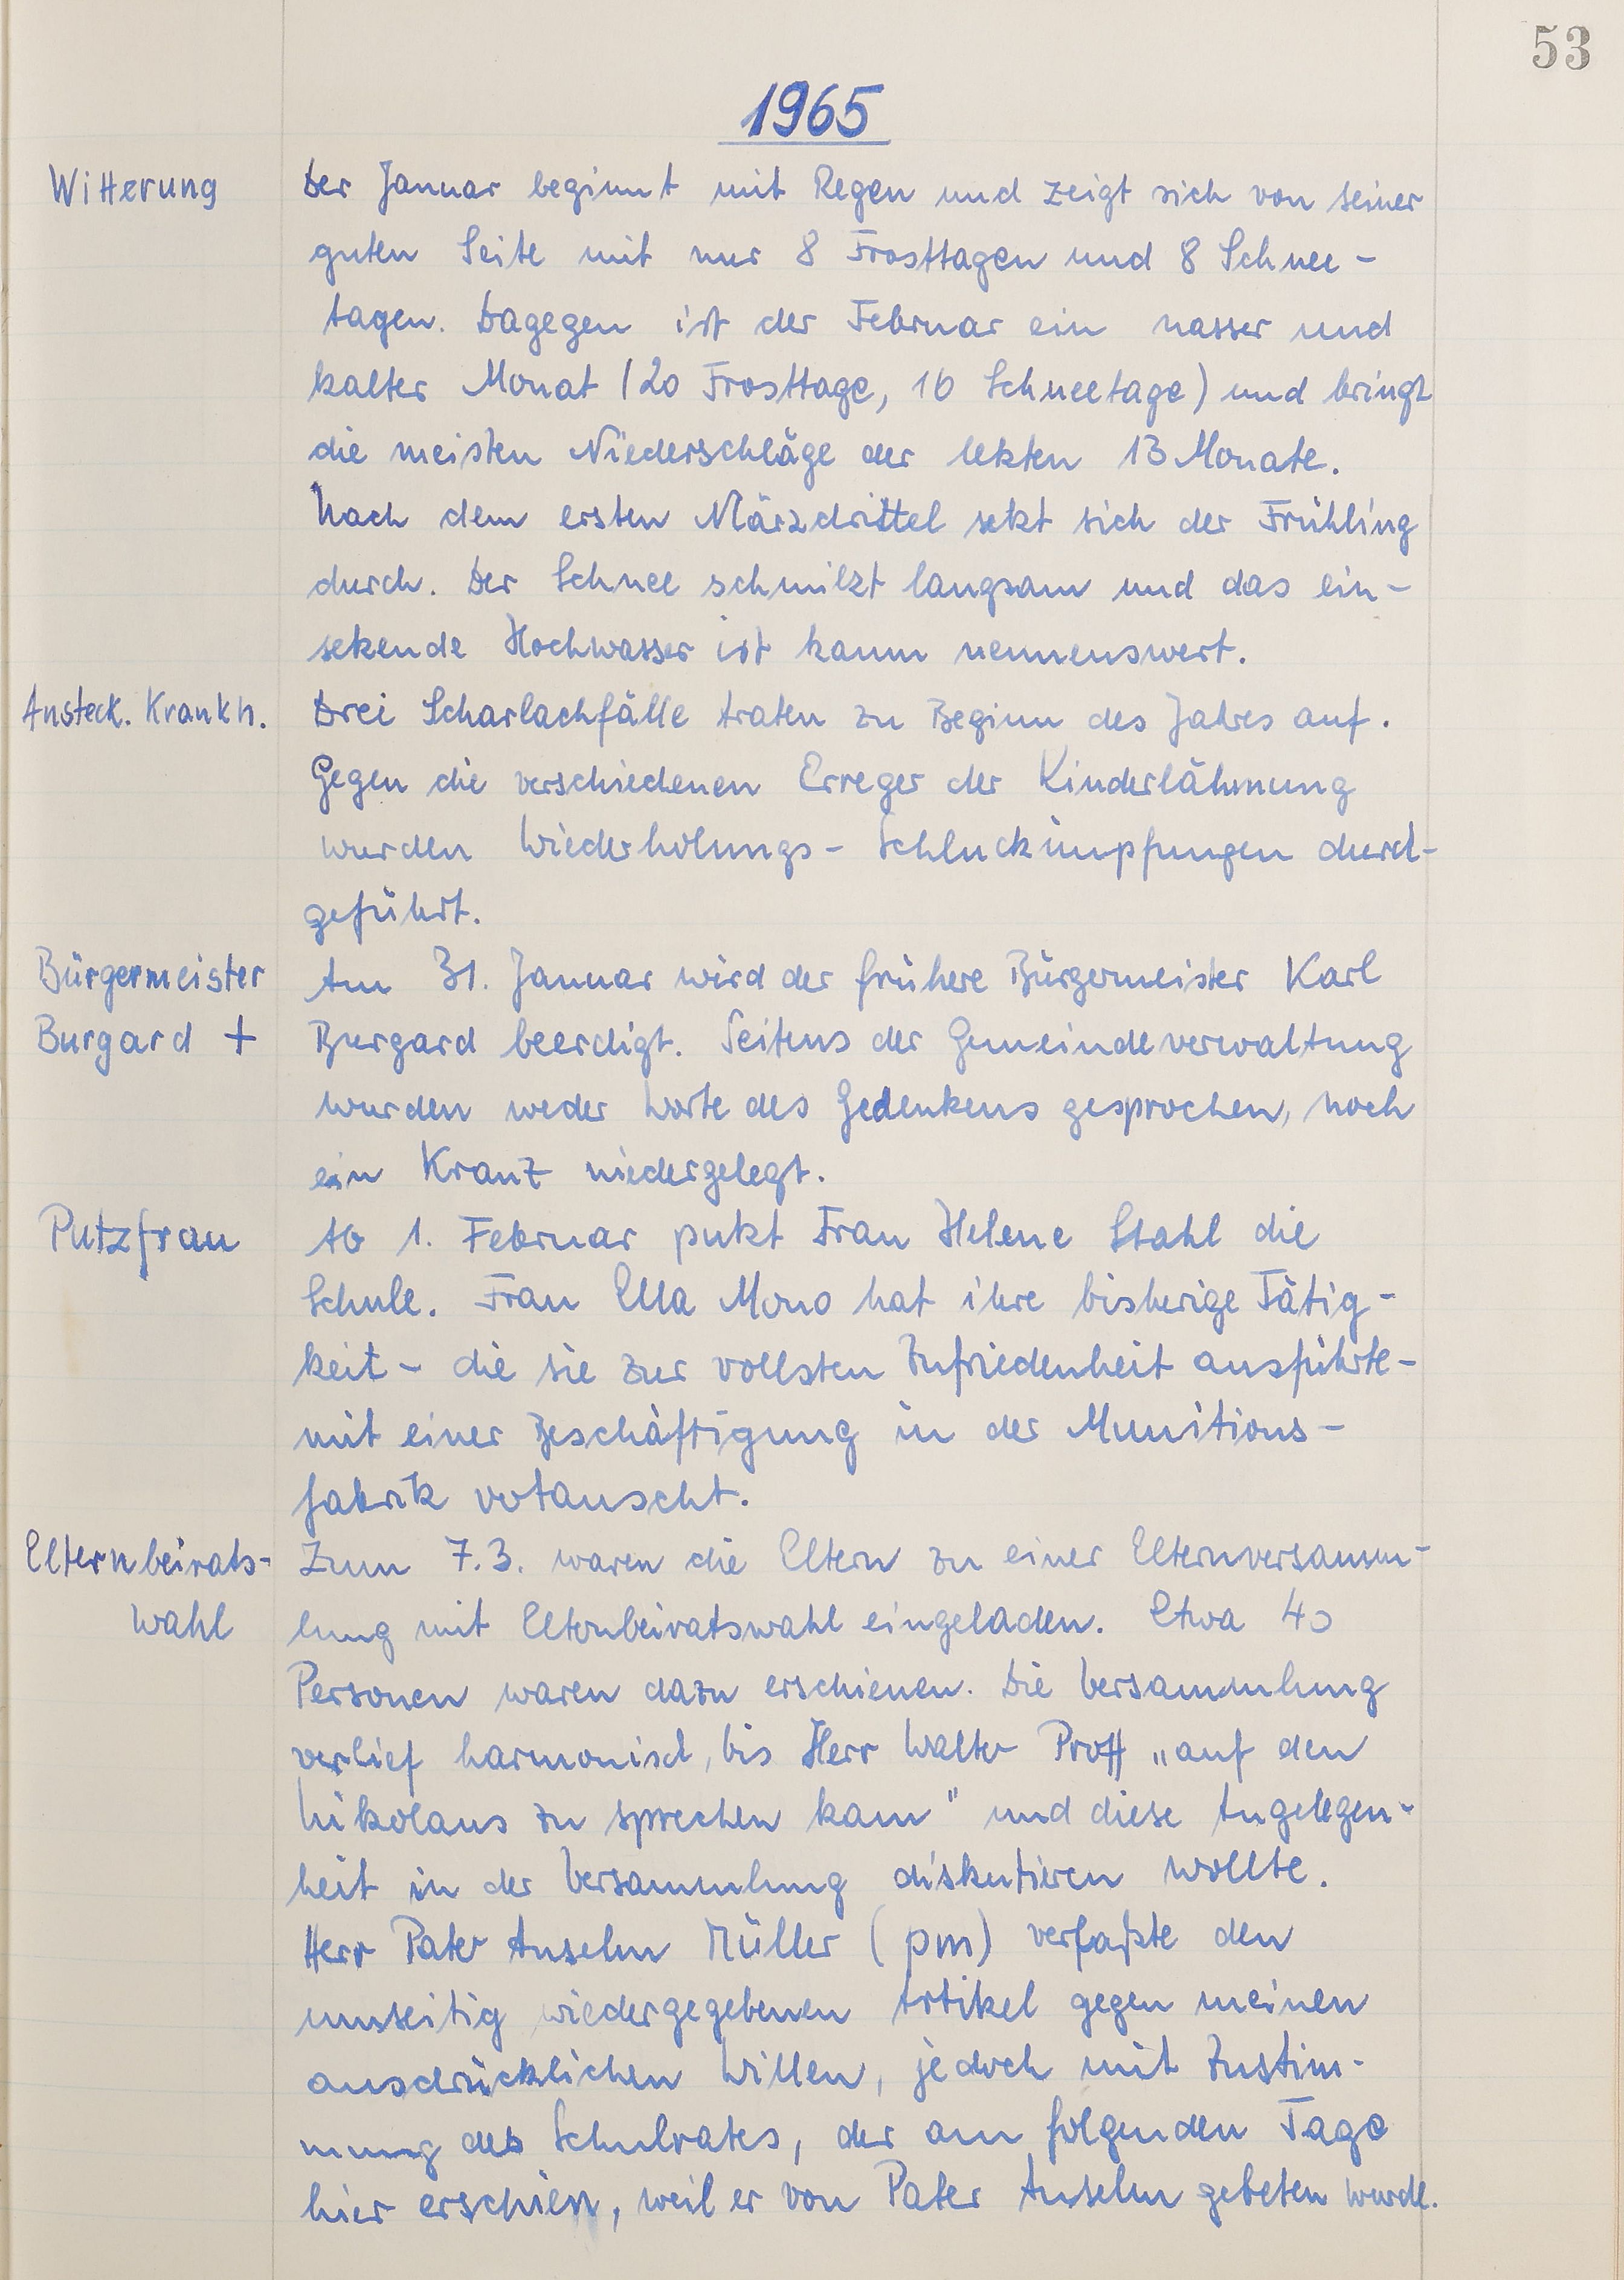 53
1965
Witterung
Der Januar beginnt mit Regen und zeigt sich von seiner
guten Seite mit nur 8 Frosttagen und 8 Schnee-
tagen. Dagegen ist der Februar ein nasser und
kalter Monat (20 Frosttage, 16 Schneetage) und bringt
die meisten Niederschläge der letzten 13 Monate.
Nach dem ersten Märzdrittel setzt sich der Frühling
durch. Der Schnee schmilzt langsam und das ein-
setzende Hochwasser ist kaum nennenswert.
Ansteck. Krankh.
Drei Scharlachfälle traten zu Beginn des Jahres auf.
Gegen die verschiedenen Erreger der Kinderlähmung
wurden Wiederholungs-Schluckimpfungen durch-
geführt.
Bürgermeister
Burgard +
Am 31. Januar wird der frühere Bürgermeister Karl
Burgard beerdigt. Seitens der Gemeindeverwaltung
wurden weder Worte des Gedenkens gesprochen, noch
ein Kranz niedergelegt.
Putzfrau
Ab 1. Februar putzt Frau Helene Stahl die
Schule. Frau Ella Mono hat ihre bisherige Tätig-
keit - die sie zur vollsten Zufriedenheit ausführte-
mit einer Beschäftigung in der Munitions-
fabrik vertauscht.
Elternbeirats-
wahl
Zum 7.3. waren die Eltern zu einer Elternversamm-
lung mit Elternbeiratswahl eingeladen. Etwa 40
Personen waren dazu erschienen. Die Versammlung
verlief harmonisch, bis Herr Walter Proff „auf den
Nikolaus zu sprechen kam" und diese Angelegen-
heit in der Versammlung diskutieren wollte.
Herr Pater Anselm Müller (pm) verfaßte den
umseitig wiedergegebenen Artikel gegen meinen
ausdrücklichen Willen, jedoch mit Zustim-
mung des Schulrates, der am folgenden Tage
hier erschien, weil er von Pater Anselm gebeten wurde.